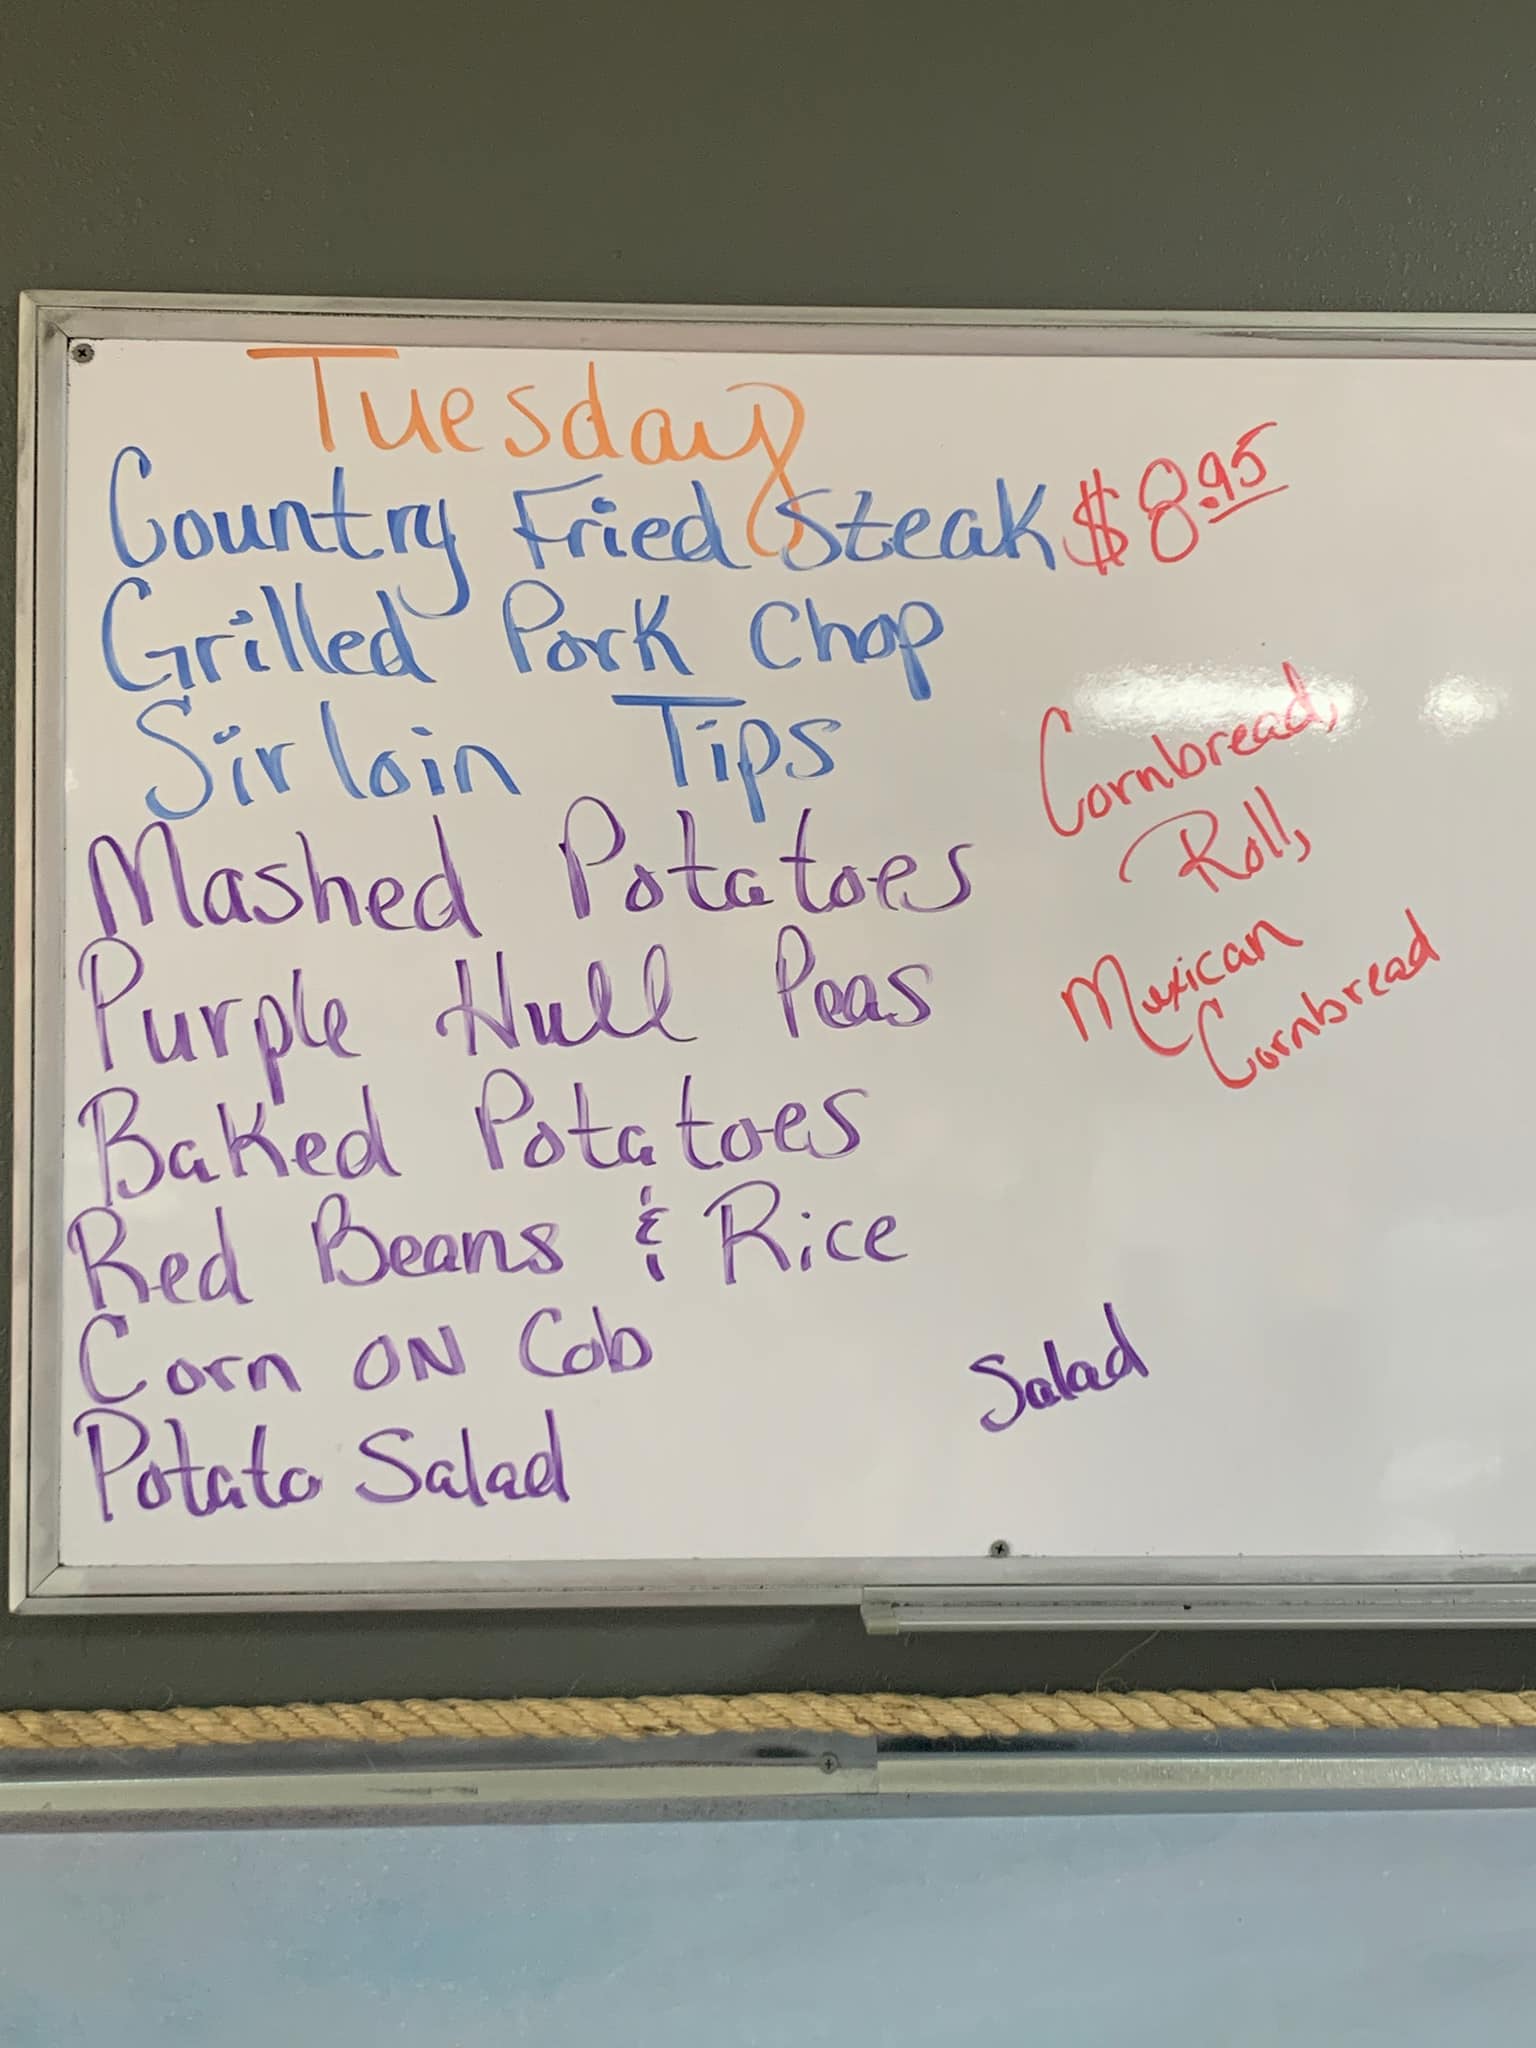 Tuesday
Country Fried Steak $8.95
Grilled Pork Chop
Sirloin Tips
Mashed Potatoes
Purple Hull Peas
Baked Potatoes
Red Beans & Rice
Corn ON Cob
Potato Salad
Cornbread,
Rolls
Mexican
Cornbread
Salad